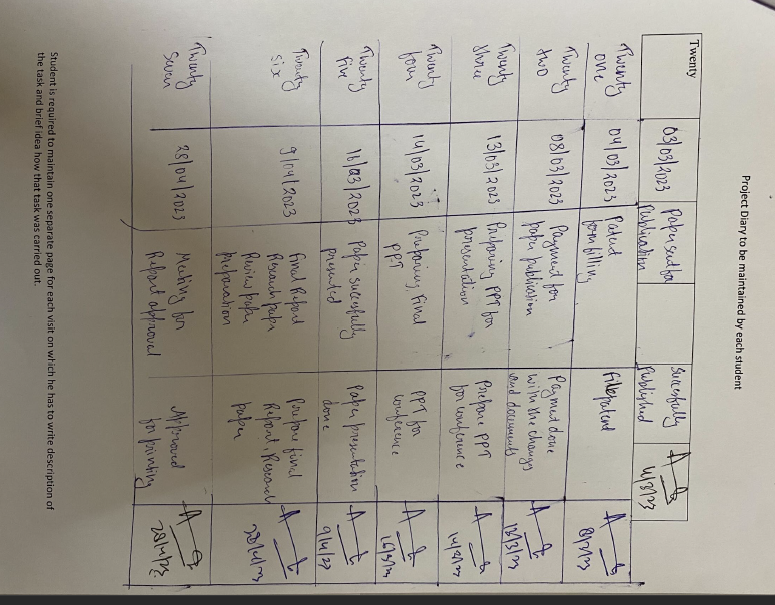 Project Diary to be maintained by each student
Twenty
03/03/2023
Paper sent for
Publication
Sucessfully
Published
4/3/23
Twenty
one
04/03/2023
Patent
form filling
File patent
8/3/23
Twenty
two
08/03/2023
Payment for
paper publication
Payment done
with the changes
and documents
13/3/23
Twenty
three
13/03/2023
Preparing PPT for
presentation
Prepare PPT
for conference
14/3/23
Twenty
four
14/03/2023
Preparing Final
PPT
PPT for
conference
16/3/23
Twenty
Five
16/03/2023
Paper sucessfully
presented
Paper presentation
done
9/4/23
Twenty
six
9/04/2023
Final Report
Research paper
Review paper
Preparation
Prepare final
Report, Research
paper
28/4/23
Twenty
seven
28/04/2023
Meeting for
Report approval
Approved
for printing
28/4/23
Student is required to maintain one separate page for each visit on which he has to write description of
the task and brief idea how that task was carried out.